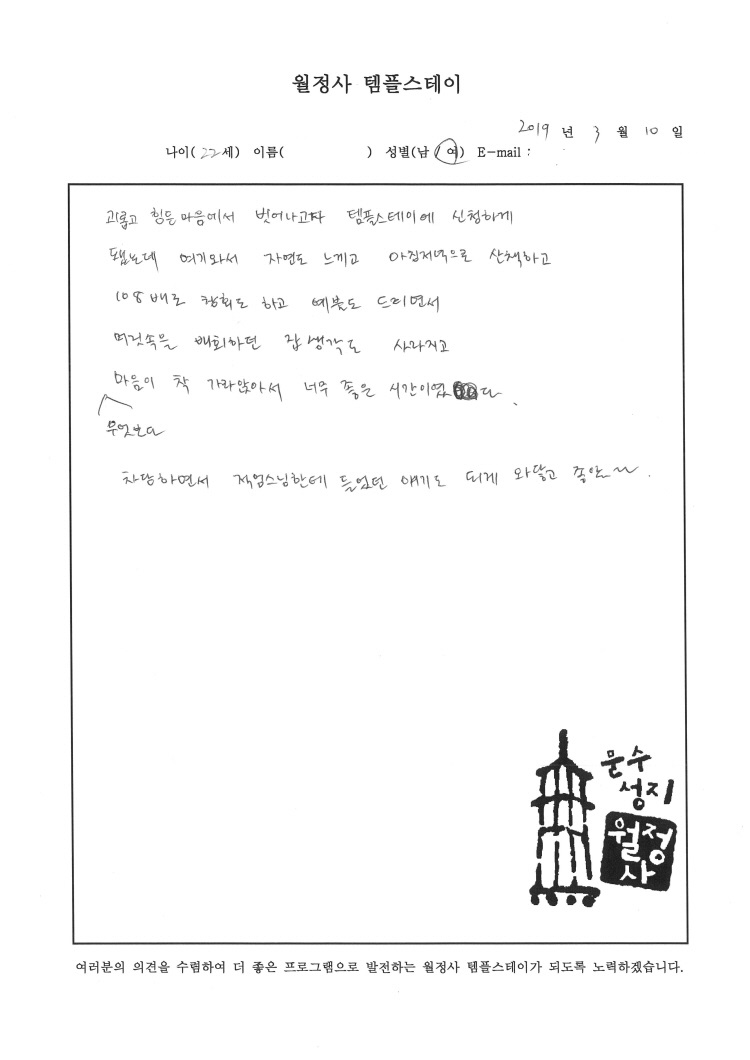 월정사 템플스테이
2019 년 3 월 10 일
나이( 22세) 이름( ) 성별(남 / 여) E-mail :
괴롭고 힘든 마음에서 벗어나고자 템플스테이에 신청하게
됐는데 여기와서 자연도 느끼고 아침저녁으로 산책하고
108배로 참회도 하고 예불도 드리면서
머릿속을 배회하던 잡생각도 사라지고
마음이 착 가라앉아서 너무 좋은 시간이였다.
무엇보다
차담하면서 적엄스님한테 들었던 얘기도 되게 와닿고 좋았~.
문수
성지
월정
사
여러분의 의견을 수렴하여 더 좋은 프로그램으로 발전하는 월정사 템플스테이가 되도록 노력하겠습니다.